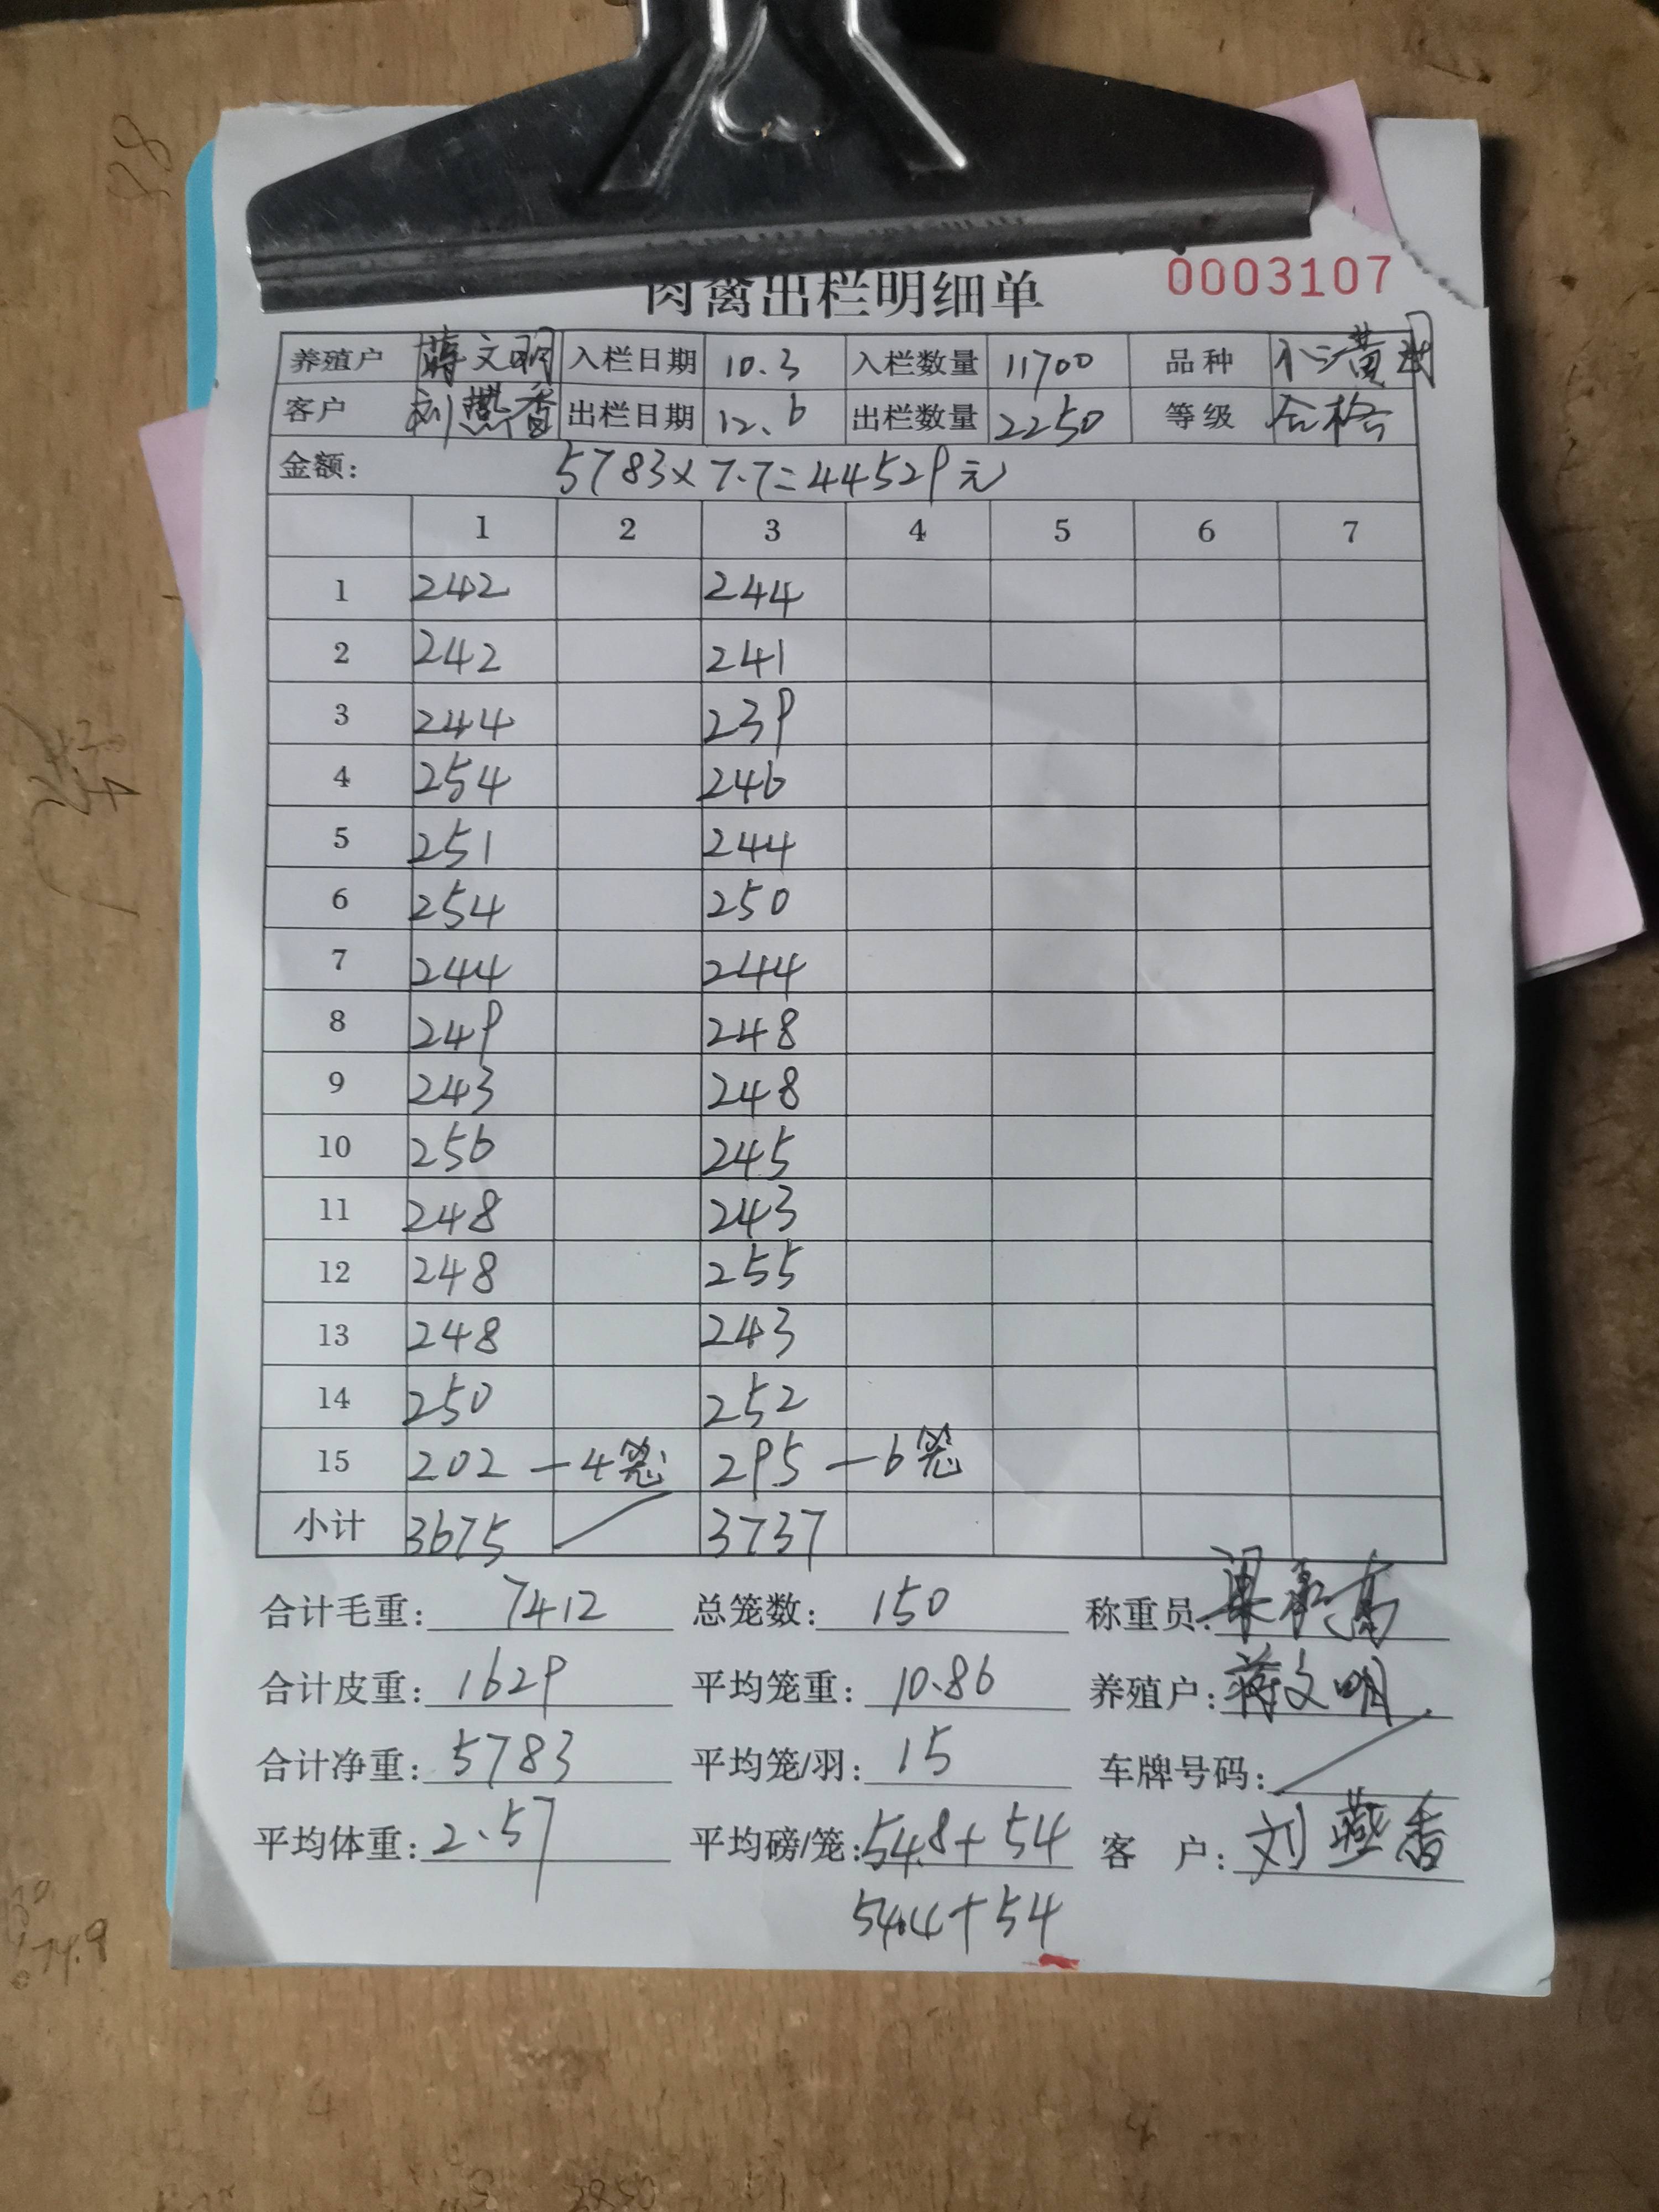 肉禽出栏明细单 0003107
养殖户 蒋文明 入栏日期 10.3 入栏数量 11700 品种
客户 刘燕香 出栏日期 12.6 出栏数量 2250 等级 合格
金额: 5783×7.7=44529元
1 2 3 4 5 6 7
1 242 244
2 242 241
3 244 239
4 254 246
5 251 244
6 254 250
7 244 244
8 249 248
9 243 248
10 256 245
11 248 243
12 248 255
13 248 243
14 250 252
15 202 —4笼 295 —6笼
小计 3675 3737
合计毛重: 7412 总笼数: 150 称重员:
合计皮重: 1629 平均笼重: 10.86 养殖户: 蒋文明
合计净重: 5783 平均笼/羽: 15 车牌号码:
平均体重: 2.57 平均磅/笼: 54.8+54 客 户: 刘燕香
54.4+54